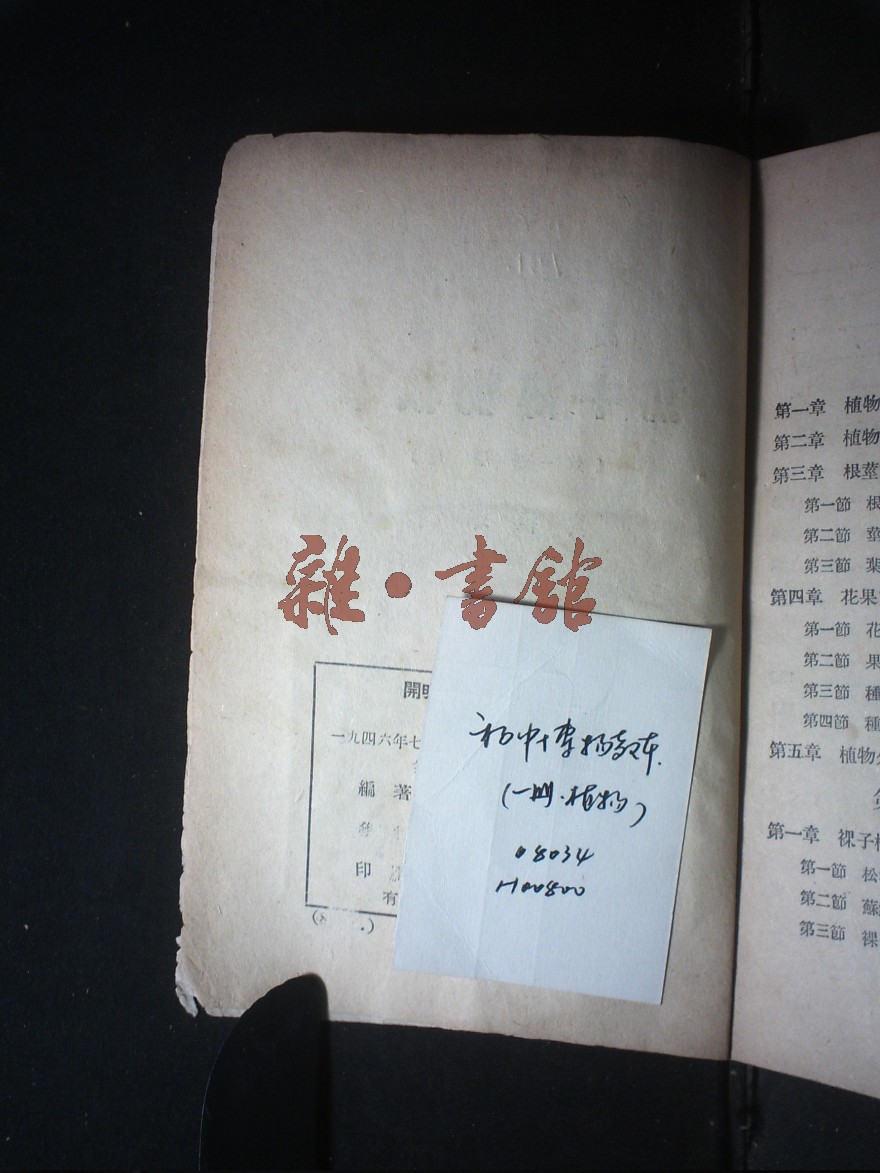 雜·書舘
開明
一九四六年七
編 著
印
有
初中博物教本
(一冊·植物)
08034
H00800
第一章 植物
第二章 植物
第三章 根莖
第一節 根
第二節 莖
第三節 葉
第四章 花果
第一節 花
第二節 果
第三節 種
第四節 種
第五章 植物
第一章 裸子
第一節 松
第二節 蘇
第三節 裸